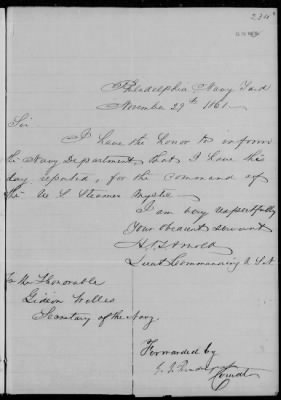 234
Philadelphia Navy Yard
November 29th 1861
Sir
I have the honor to inform
the Navy Department that I have this
day reported, for the command of
the U. S. Steamer Mystic.
I am very respectfully
Your obedient servant
Lieut Commanding U.S.N
To the Honorable
Gideon Welles
Secretary of the Navy.
Forwarded by
Comdt